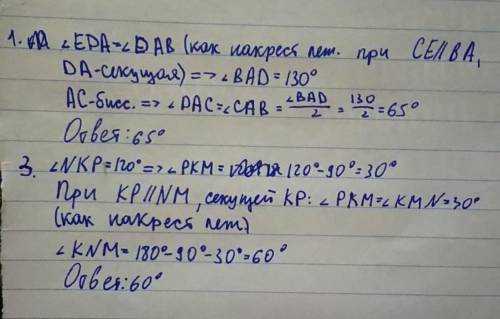 1. ∠EDA=∠DAB (как накрест леж. при CE∥BA,
DA-секущая) => ∠BAD=130°
AC-бисс. => ∠DAC=∠CAB=∠BAD/2=130/2=65°
Ответ: 65°
3. ∠NKP=120° => ∠PKM= 120°-90°=30°
При KP∥NM, секущей KP: ∠PKM=∠KMN=30°
(как накрест леж)
∠KNM=180°-90°-30°=60°
Ответ: 60°